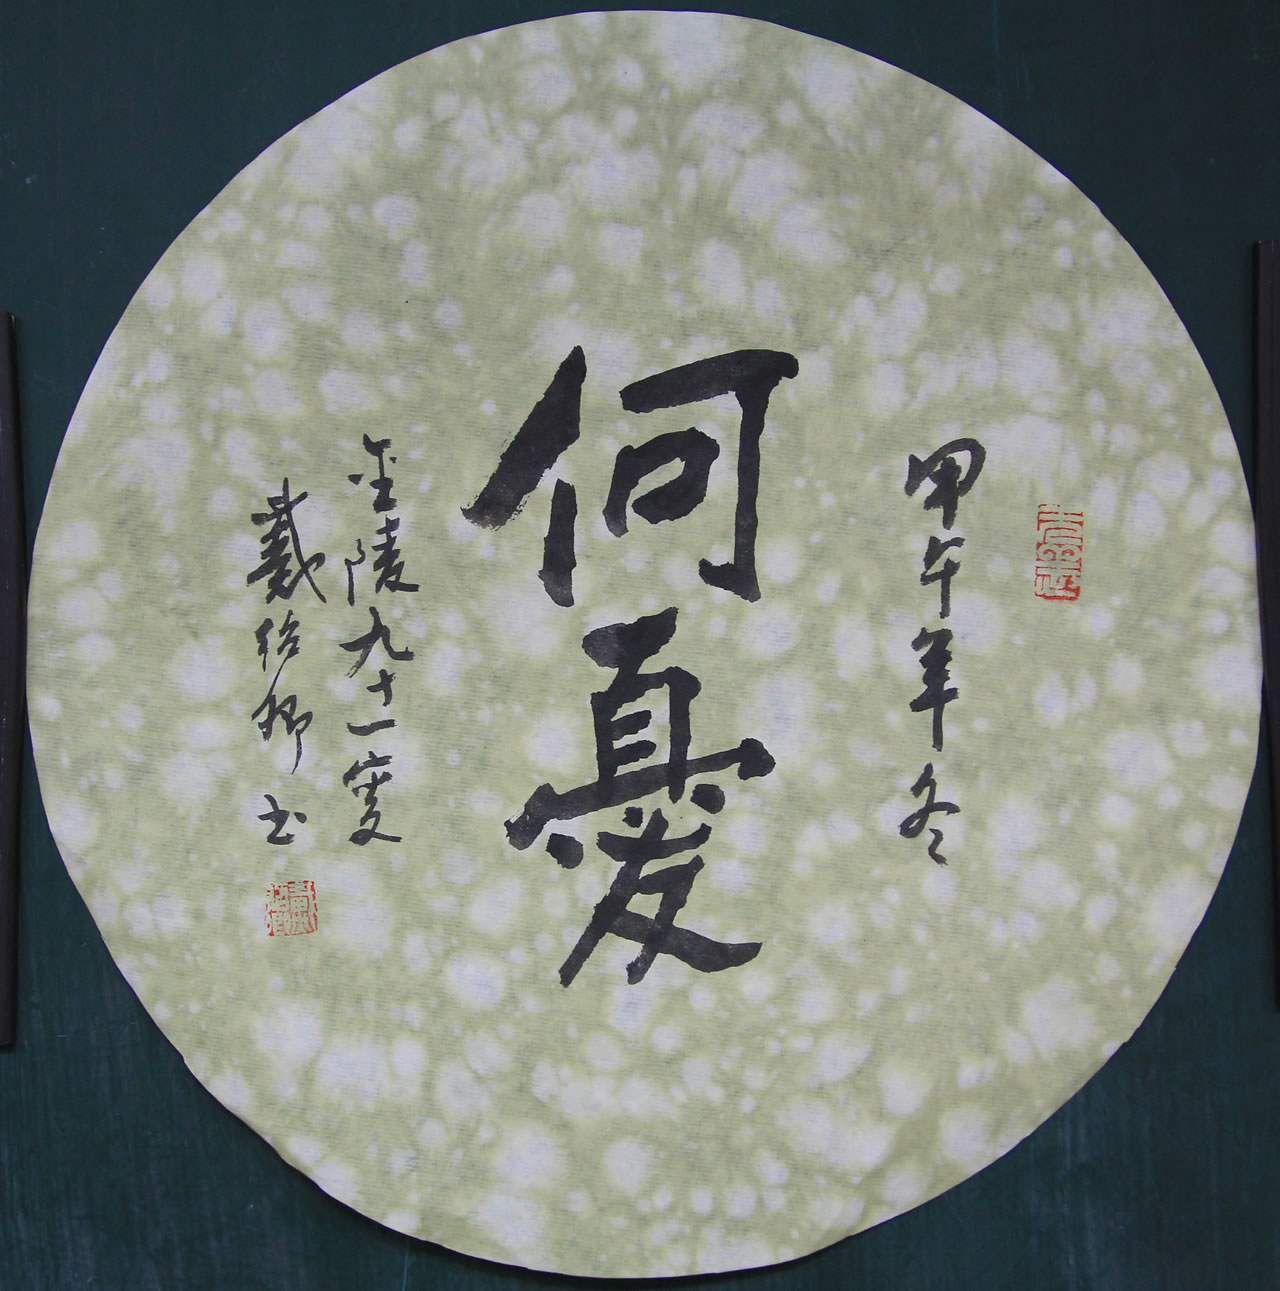 甲午年冬
何憂
金陵九十一叟
戴紹卿书